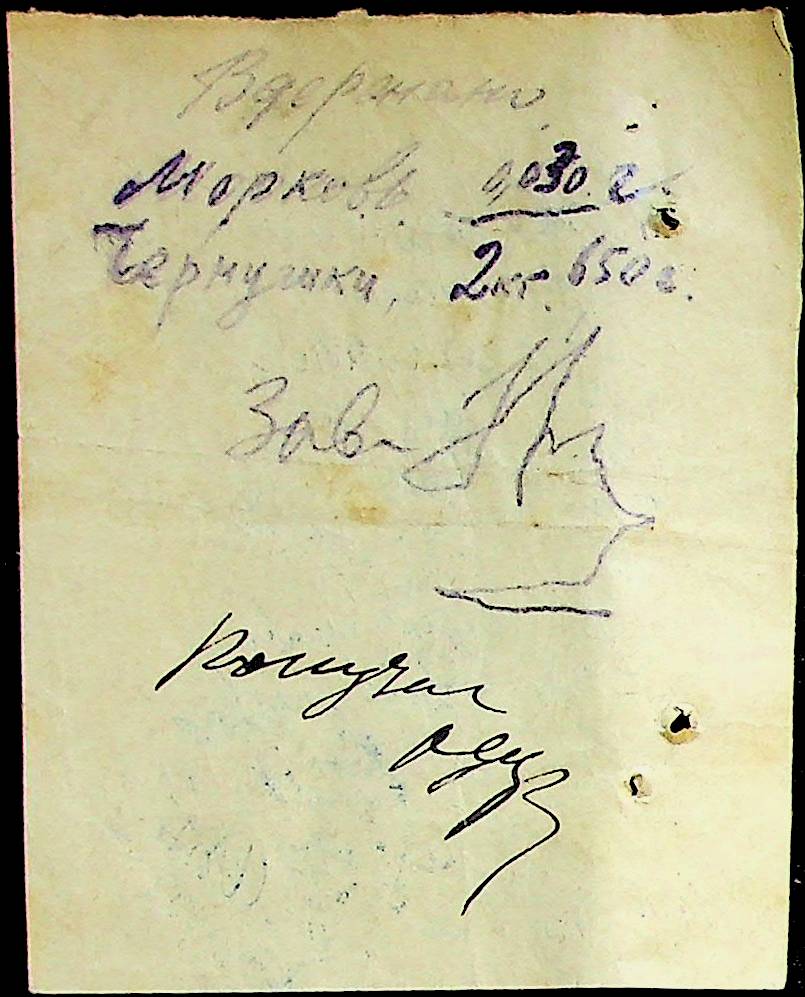 Вдержано
Морковь 0,030 г.
Чернушки, 2 кг. 650 г.
Зав.
Получил